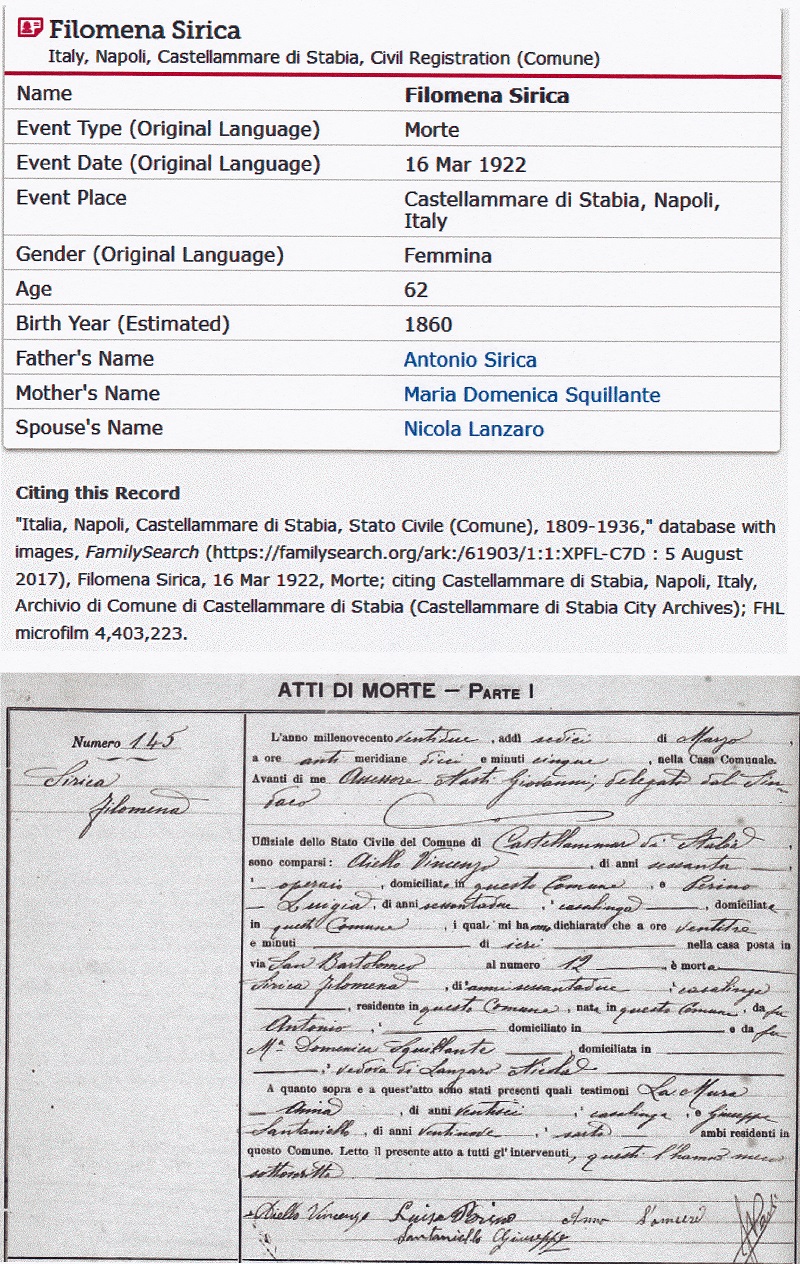 Filomena Sirica
Italy, Napoli, Castellammare di Stabia, Civil Registration (Comune)
Name Filomena Sirica
Event Type (Original Language) Morte
Event Date (Original Language) 16 Mar 1922
Event Place Castellammare di Stabia, Napoli,
Italy
Gender (Original Language) Femmina
Age 62
Birth Year (Estimated) 1860
Father's Name Antonio Sirica
Mother's Name Maria Domenica Squillante
Spouse's Name Nicola Lanzaro
Citing this Record
"Italia, Napoli, Castellammare di Stabia, Stato Civile (Comune), 1809-1936," database with
images, FamilySearch (https://familysearch.org/ark:/61903/1:1:XPFL-C7D : 5 August
2017), Filomena Sirica, 16 Mar 1922, Morte; citing Castellammare di Stabia, Napoli, Italy,
Archivio di Comune di Castellammare di Stabia (Castellammare di Stabia City Archives); FHL
microfilm 4,403,223.
ATTI DI MORTE — PARTE I
Numero 145
Sirica
Filomena
L'anno millenovecento ventidue, addì sedici di Marzo,
a ore anti meridiane dieci e minuti cinque, nella Casa Comunale.
Avanti di me Assessore Nasti Giovanni, delegato dal Sin-
daco
Uffiziale dello Stato Civile del Comune di Castellammare di Stabia,
sono comparsi: Aiello Vincenzo, di anni sessanta
operaio, domiciliato in questo Comune, e Perino
Luigia, di anni sessantadue, casalinga, domiciliata
in questo Comune, i quali mi hanno dichiarato che a ore ventitre
e minuti di ieri nella casa posta in
via San Bartolomeo al numero 12, è morta
Sirica Filomena, di anni sessantadue, casalinga
, residente in questo Comune, nata in questo Comune, da fu
Antonio, domiciliato in e da fu
Mª Domenica Squillante, domiciliata in
vedova di Lanzaro Nicola
A quanto sopra e a quest'atto sono stati presenti quali testimoni La Mura
Anna, di anni ventisei, casalinga, e Giuseppe
Santaniello, di anni ventinove, sarto ambi residenti in
questo Comune. Letto il presente atto a tutti gl' intervenuti, questi l'hanno meco
sottoscritto
Aiello Vincenzo Luisa Perino Anna
Santaniello Giuseppe